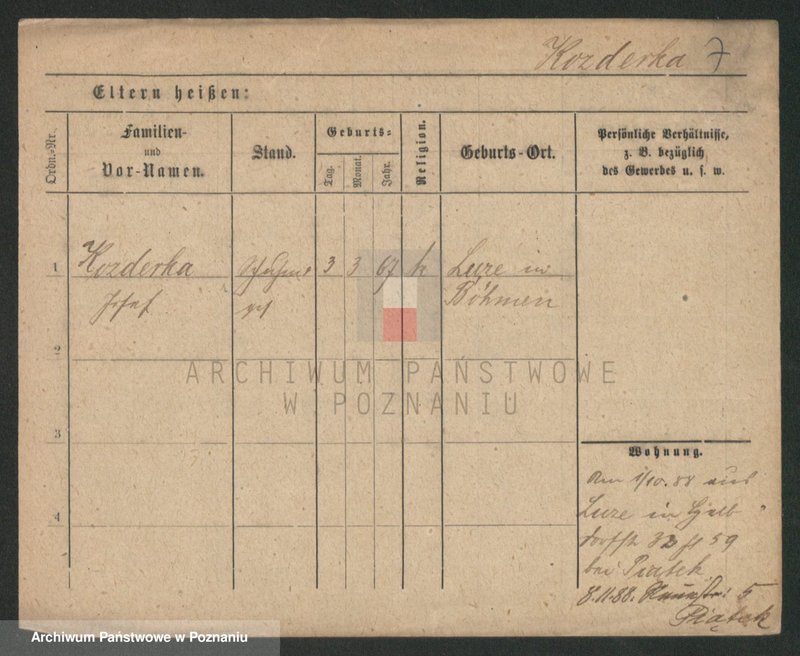 Kozderka 7
Eltern heißen:
Ordn.-Nr.
Familien-
und
Vor-Namen.
Stand.
Geburts-
Tag.
Monat.
Jahr.
Religion.
Geburts-Ort.
Persönliche Verhältnisse,
z. B. bezüglich
des Gewerbes u. s. w.
1 Kozderka 3 3 67 k Luze in
Josef Böhmen
2
ARCHIWUM PAŃSTWOWE
W POZNANIU
3
4
Wohnung.
Am 1/10.88 aus
Luze in Halb
dorfstr 32 59
bei Piątek
8.11.88. 5
Piątek
Archiwum Państwowe w Poznaniu